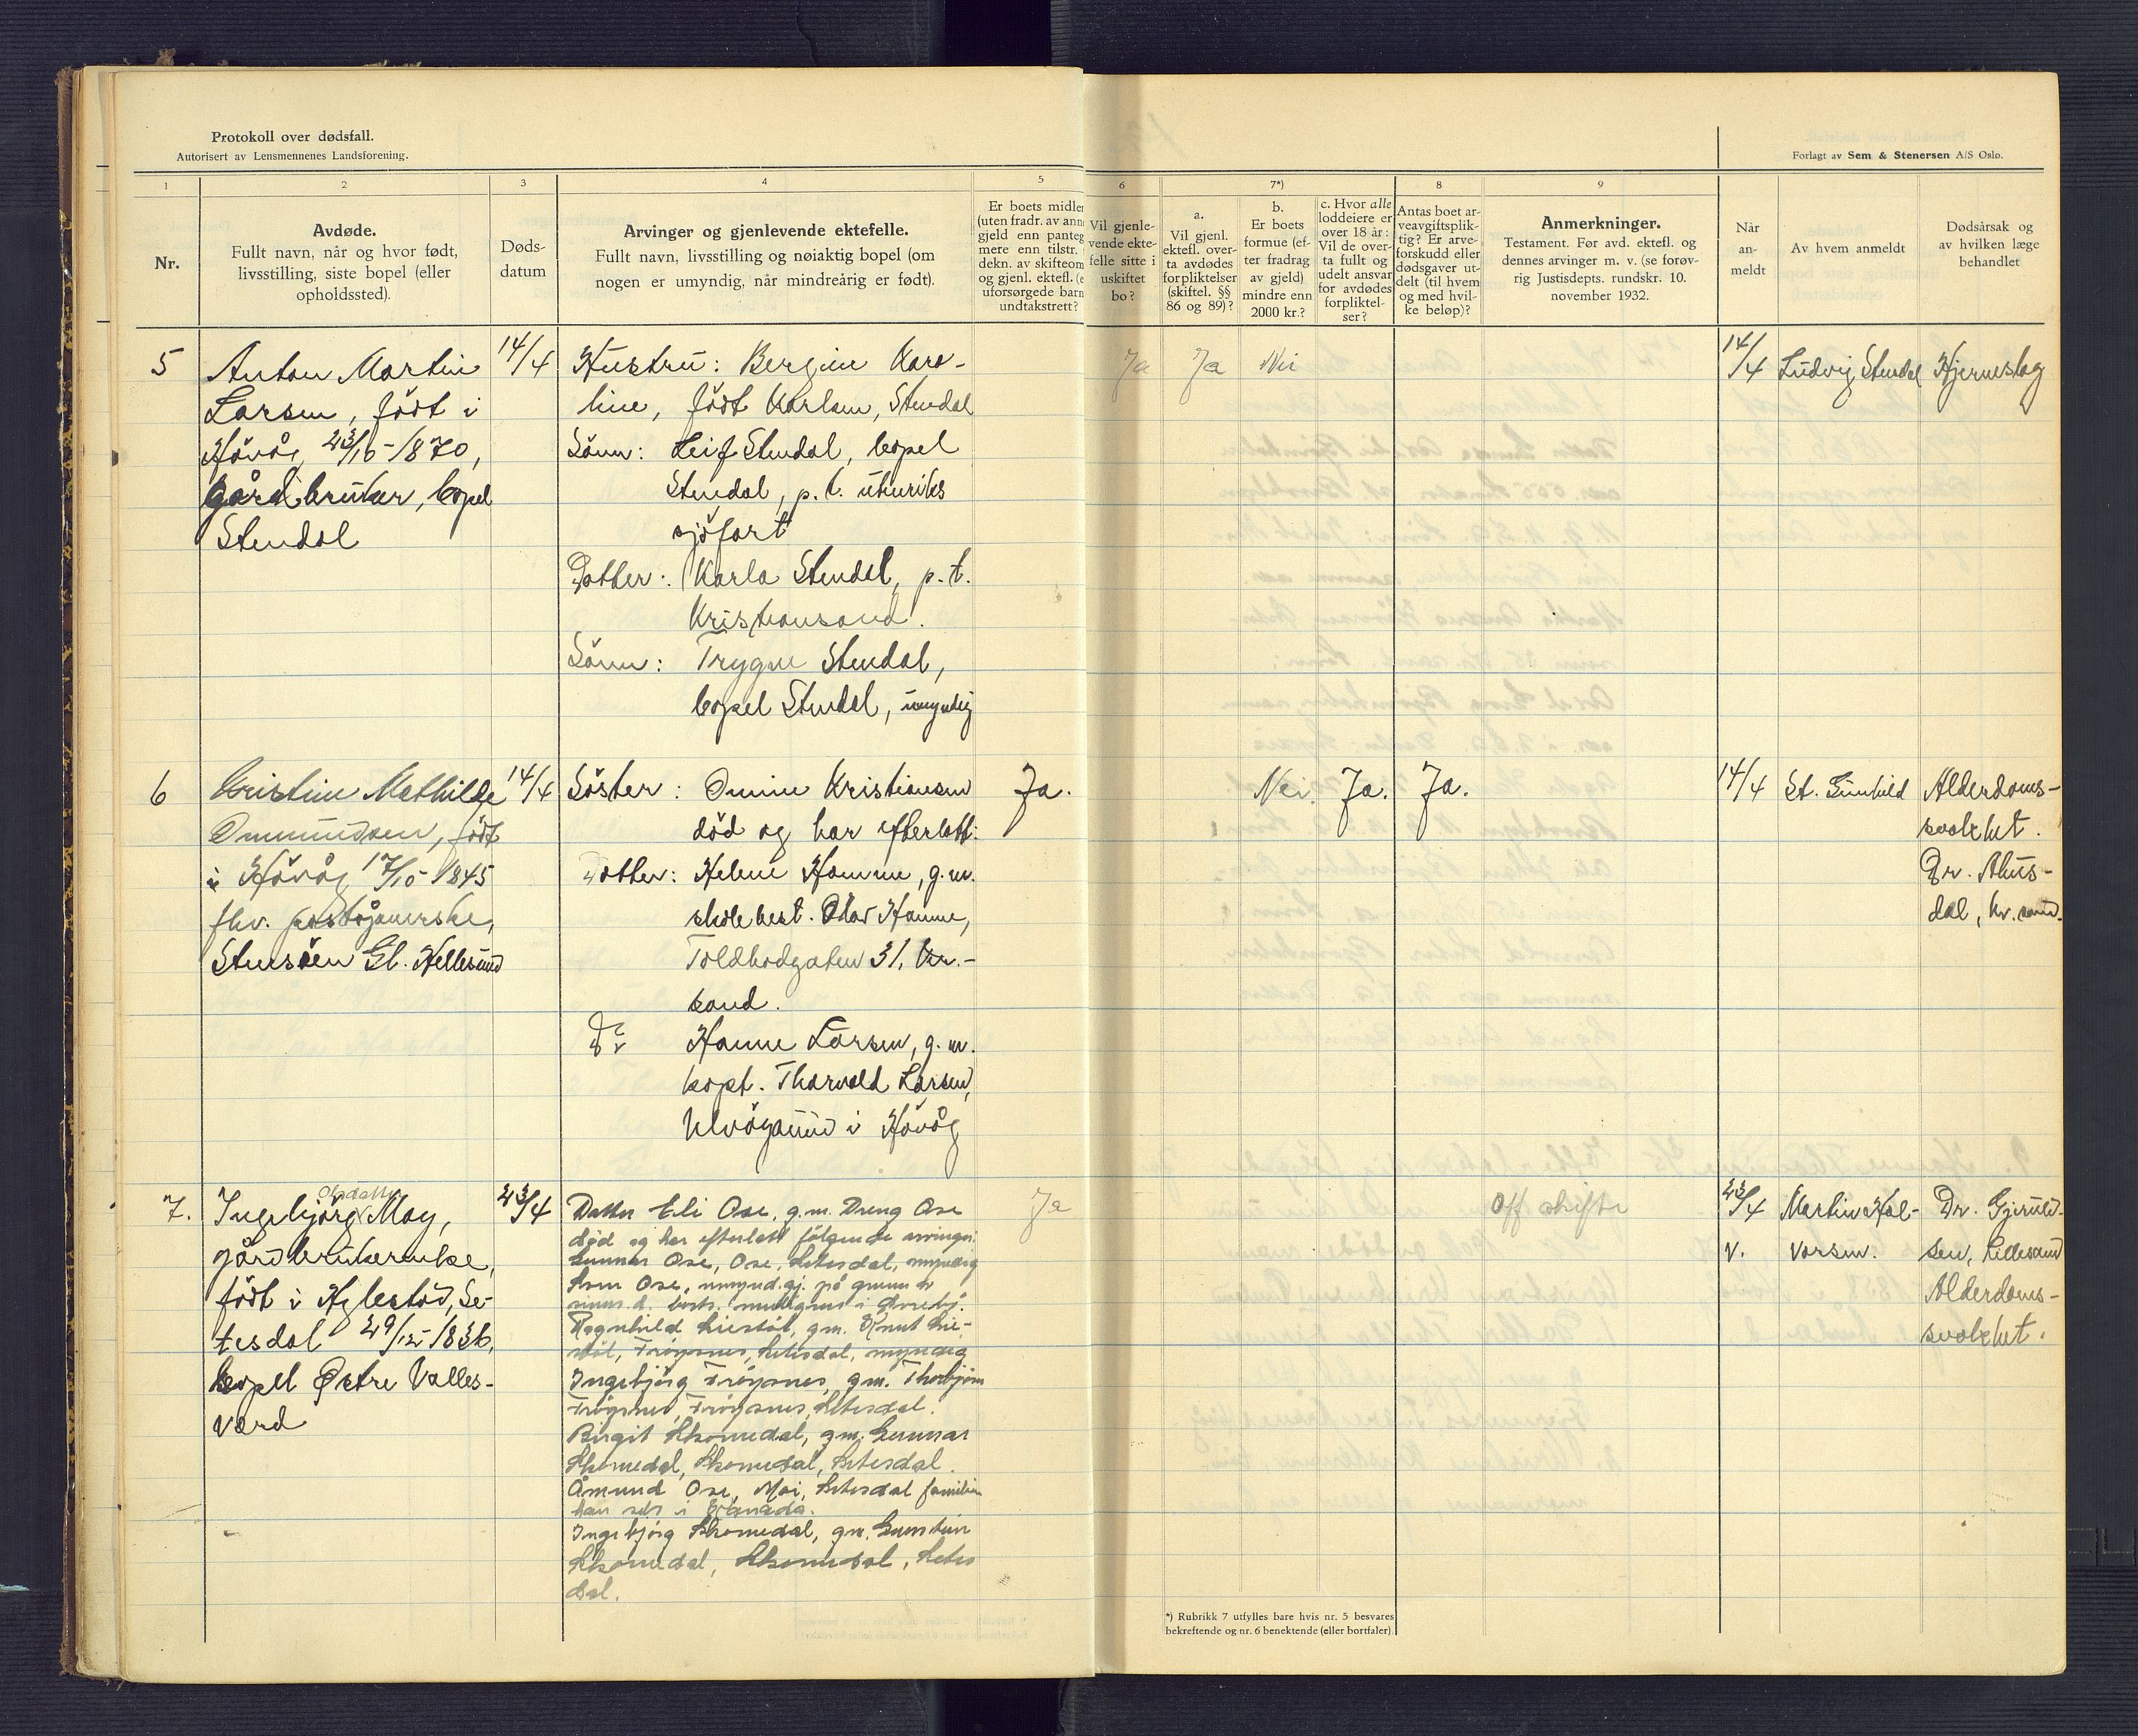 Protokoll over dødsfall.
Autorisert av Lensmennenes Landsforening.
Forlagt av Sem & Stenersen A/S Oslo.
1
2
3
4
5
6
7*)
8
9
Nr.
Avdøde.
Fullt navn, når og hvor født,
livsstilling, siste bopel (eller
opholdssted).
Døds-
datum
Arvinger og gjenlevende ektefelle.
Fullt navn, livsstilling og nøiaktig bopel (om
nogen er umyndig, når mindreårig er født).
Er boets midler
(uten fradr. av ann
gjeld enn panteg
mere enn tilstr.
dekn. av skifteom
og gjenl. ektefl. (e
uforsørgede barn
undtakstrett?
Vil gjenle-
vende ekte-
felle sitte i
uskiftet
bo?
a.
Vil gjenl.
ektefl. over-
ta avdødes
forpliktelser
(skiftel. §§
86 og 89)?
b.
Er boets
formue (ef-
ter fradrag
av gjeld)
mindre enn
2000 kr.?
c. Hvor alle
loddeiere er
over 18 år:
Vil de over-
ta fullt og
udelt ansvar
for avdødes
forpliktel-
ser?
Antas boet ar-
veavgiftsplik-
tig? Er arve-
forskudd eller
dødsgaver ut-
delt (til hvem
og med hvil-
ke beløp)?
Anmerkninger.
Testament. Før avd. ektefl. og
dennes arvinger m. v. (se forøv-
rig Justisdepts. rundskr. 10.
november 1932.
Når
an-
meldt
Av hvem anmeldt
Dødsårsak og
av hvilken læge
behandlet
5
Anton Martin
Larsen, født i
Høvåg 23/10-1870,
gårdbruker, bopel
Stendal
14/4
Hustru: Bergine Karo-
line, født Karlsen, Stendal
Sönn: Leif Stendal, bopel
Stendal, p.t. utenriks
sjöfart
Dotter: Karla Stendal, p.t.
Kristiansand.
Sönn: Trygve Stendal,
bopel Stendal, umyndig
Ja
Ja
Nei
14/4
Ludvig Stendal
Hjerneslag
6
Kristine Mathilde
Ommundsen, født
i Høvåg 17/10-1845
fhv. poståpnerske,
Stusöen Gl. Hellesund
14/4
Söster: Omine Kristiansen
död og har efterlatt:
Dotter: Helene Homme, g.m.
skolebest. Olav Homme,
Toldbodgaten 31, Kr.-
sand.
Hanne Larsen, g.m.
kapt. Thorvald Larsen,
Ulvöysund i Hövåg
Ja.
Nei.
Ja.
Ja.
14/4
St. Gunhild
Alderdoms-
svakhet.
Dr. Ahus-
dal, Kr.sand.
7.
Olsdatter
Ingebjörg Moy,
gårdbrukerenke,
født i Hylestad, Se-
tesdal 29/12-1836,
bopel Østre Valles-
verd
23/4
Datter Eli Ose, g.m. Dreng Ose
död og har efterlatt fölgende arvinger:
Gunnar Ose, Ose, Setesdal, myndig
Ose, umynd.gj. på grunn av
Ragnhild Liestöl, gm. Knut Lie-
stöl, Fröysnes, Setesdal, myndig
Ingebjörg Fröysnes, gm. Thorbjörn
Fröysnes, Fröysnes, Setesdal.
Birgit Skomedal, gm. Gunnar
Skomedal, Skomedal, Setesdal.
Åmund Ose, Moi, Setesdal familien
han selv i Canada.
Ingebjörg Skomedal, gm. Gunstein
Skomedal, Skomedal, Setes
dal.
Ja
Off skifte
23/4
v.
Martin Hal-
vorsen.
Dr. Gjeruld-
sen, Lillesand
Alderdoms-
svakhet.
*) Rubrikk 7 utfylles bare hvis nr. 5 besvares
bekreftende og nr. 6 benektende (eller bortfaler).